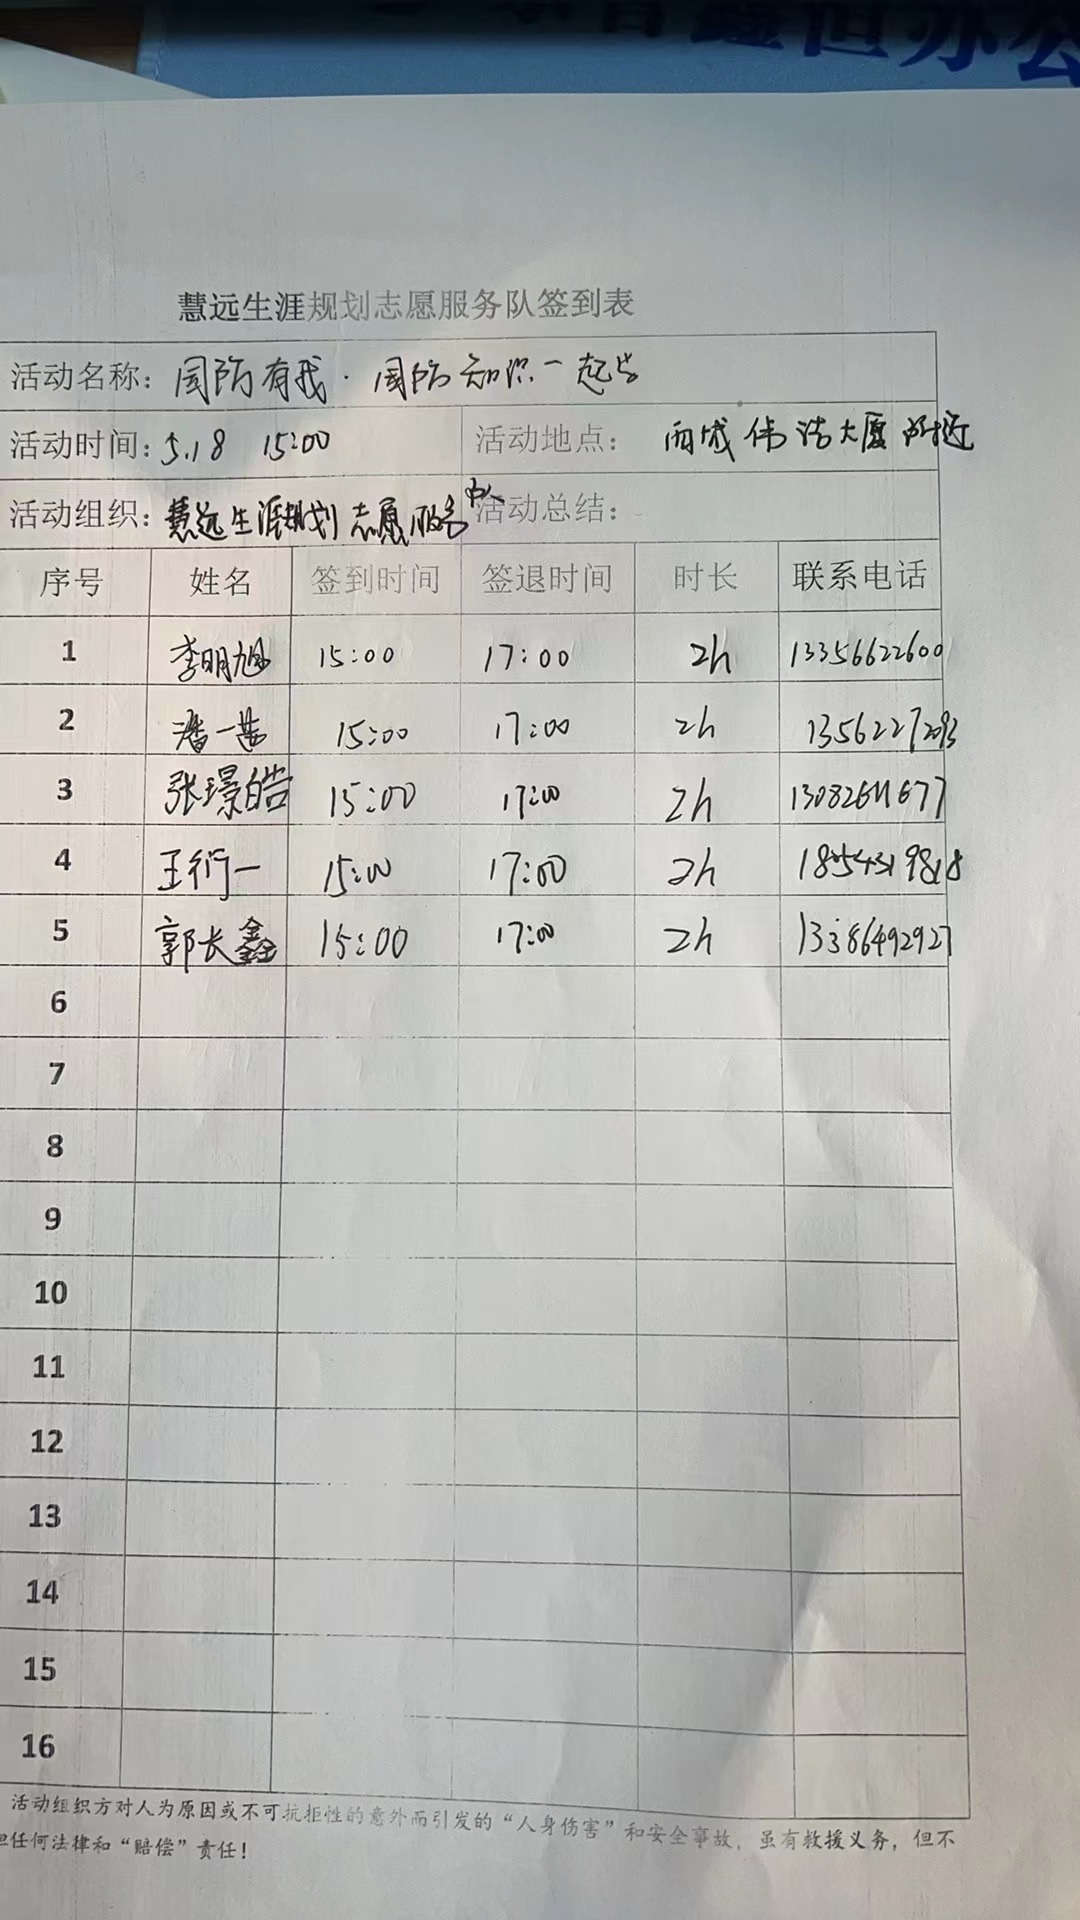 鑫恒办公
慧远生涯规划志愿服务队签到表
活动名称：国防有我·国防知识一起学
活动时间：5.18 15:00 活动地点：西城伟浩大厦附近
活动组织：慧远生涯规划志愿服务队 活动总结：
序号 姓名 签到时间 签退时间 时长 联系电话
1 李明旭 15:00 17:00 2h 13356622600
2 潘一 15:00 17:00 2h 13562272093
3 张璟皓 15:00 17:00 2h
4 王衍一 15:00 17:00 2h 18543199818
5 郭长鑫 15:00 17:00 2h 13386492927
6
7
8
9
10
11
12
13
14
15
16
活动组织方对人为原因或不可抗拒性的意外而引发的“人身伤害”和安全事故，虽有救援义务，但不
担任何法律和“赔偿”责任！